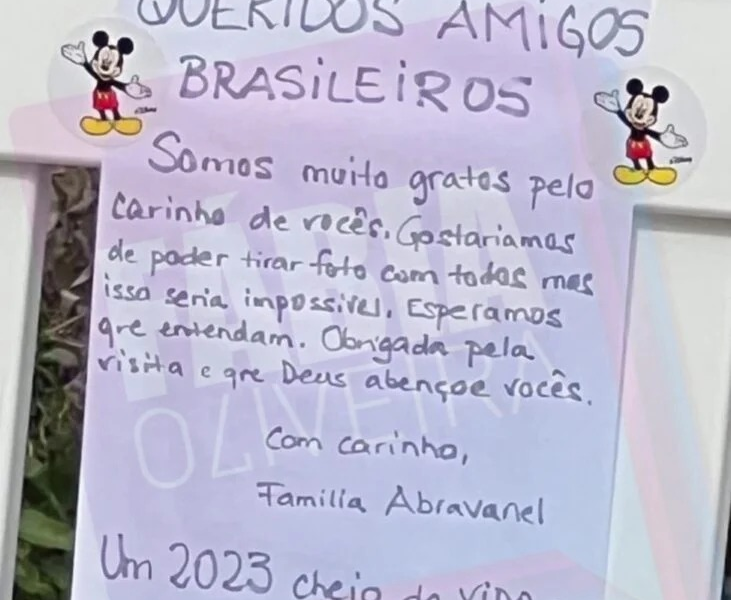 QUERIDOS AMIGOS
BRASILEIROS
Somos muito gratos pelo
carinho de vocês. Gostariamos
de poder tirar foto com todos mas
isso seria impossivel. Esperamos
que entendam. Obrigada pela
visita e que Deus abençoe vocês.
Com carinho,
Familia Abravanel
Um 2023 cheio de vida
TÁBIA
OLIVEIRA